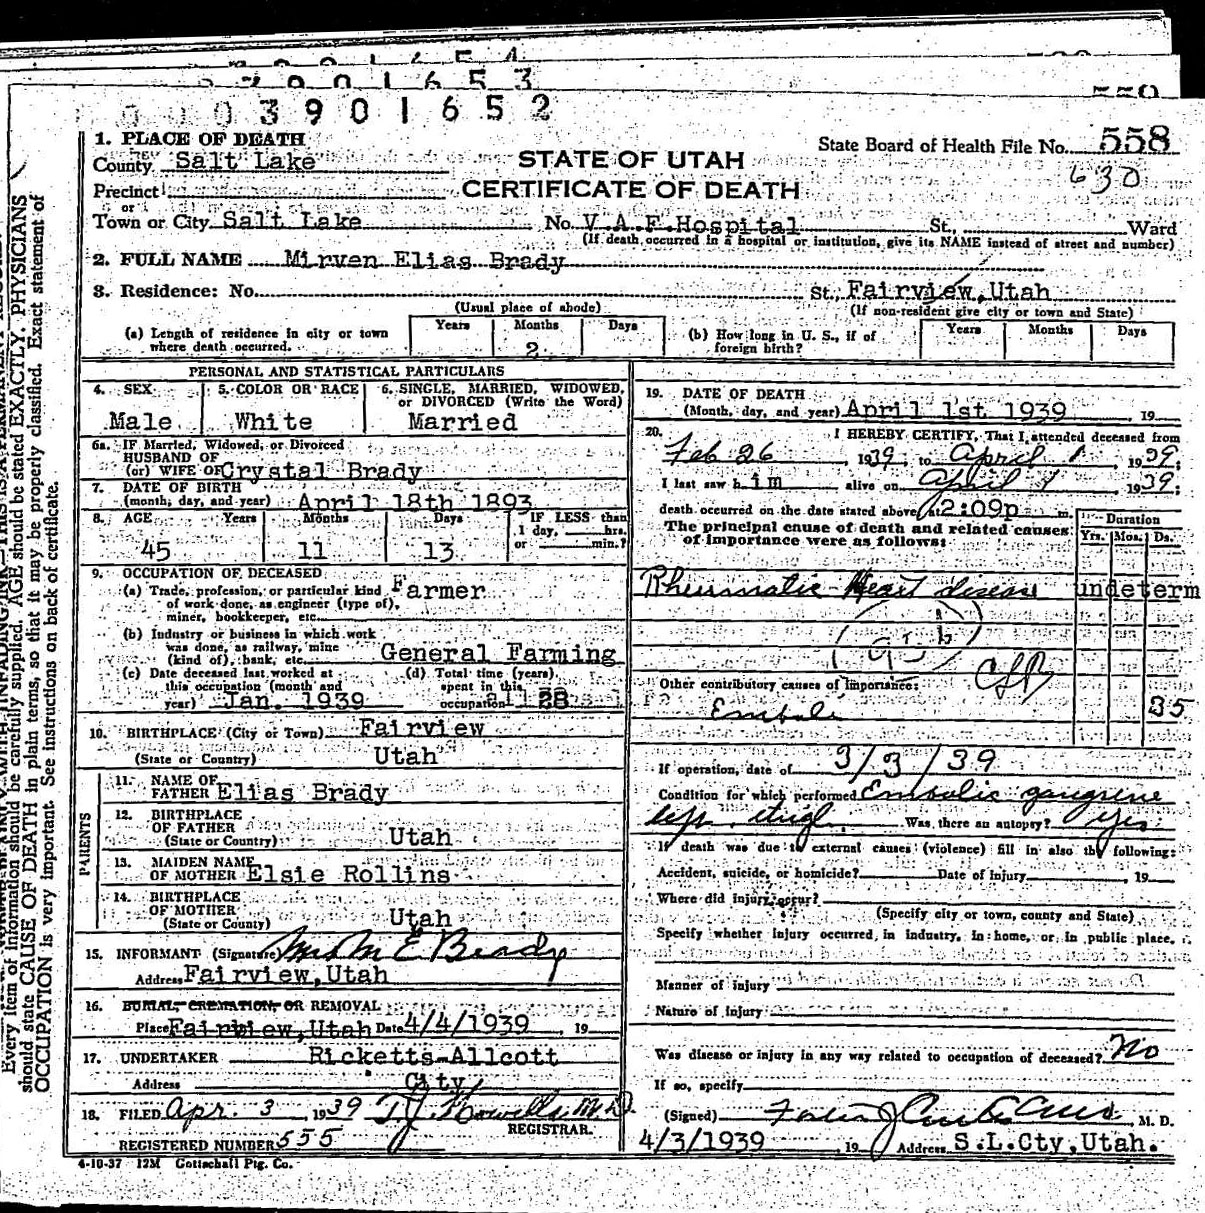 3901653
0003901652
559
State Board of Health File No. 558
630
STATE OF UTAH
CERTIFICATE OF DEATH
1. PLACE OF DEATH
County Salt Lake
Precinct
or
Town or City Salt Lake No. V.A.F. Hospital St., Ward
(If death occurred in a hospital or institution, give its NAME instead of street and number)
2. FULL NAME Mirven Elias Brady
3. Residence: No. St., Fairview, Utah
(Usual place of abode) (If non-resident give city or town and State)
(a) Length of residence in city or town where death occurred. Years Months 2 Days
(b) How long in U. S., if of foreign birth? Years Months Days
PERSONAL AND STATISTICAL PARTICULARS
4. SEX Male
5. COLOR OR RACE White
6. SINGLE, MARRIED, WIDOWED, or DIVORCED (Write the Word) Married
6a. IF Married, Widowed, or Divorced
HUSBAND OF
(or) WIFE OF Crystal Brady
7. DATE OF BIRTH
(month, day, and year) April 18th 1893
8. AGE Years Months Days IF LESS than
1 day, hrs.
or min.?
45 11 13
9. OCCUPATION OF DECEASED
(a) Trade, profession, or particular kind of work done, as engineer (type of), miner, bookkeeper, etc. Farmer
(b) Industry or business in which work was done, as railway, mine (kind of), bank, etc. General Farming
(c) Date deceased last worked at this occupation (month and year) Jan. 1939
(d) Total time (years) spent in this occupation 28
10. BIRTHPLACE (City or Town) Fairview
(State or Country) Utah
PARENTS
11. NAME OF FATHER Elias Brady
12. BIRTHPLACE OF FATHER
(State or Country) Utah
13. MAIDEN NAME OF MOTHER Elsie Rollins
14. BIRTHPLACE OF MOTHER
(State or County) Utah
15. INFORMANT (Signature) Mrs M E Brady
Address Fairview, Utah
16. BURIAL, CREMATION, OR REMOVAL
Place Fairview, Utah Date 4/4/1939, 19
17. UNDERTAKER Ricketts-Allcott
Address City
18. FILED Apr. 3 1939 T J Howells M.D.
REGISTRAR.
REGISTERED NUMBER 555
4-10-37 12M Gottschall Ptg. Co.
19. DATE OF DEATH
(Month, day, and year) April 1st 1939, 19
20. I HEREBY CERTIFY, That I attended deceased from
Feb 26, 1939, to April 1, 1939;
I last saw him alive on April 1 1939;
death occurred on the date stated above, at 2:09p m.
The principal cause of death and related causes of importance were as follows:
Duration
Yrs. Mos. Ds.
Rheumatic Heart disease undeterm
Other contributory causes of importance:
Emboli 35
If operation, date of 3/3/39
Condition for which performed Embolic gangrene
left thigh Was there an autopsy? yes
If death was due to external causes (violence) fill in also the following:
Accident, suicide, or homicide? Date of injury, 19
Where did injury occur?
(Specify city or town, county and State)
Specify whether injury occurred, in industry, in home, or in public place.
Manner of injury
Nature of injury
Was disease or injury in any way related to occupation of deceased? No
If so, specify
(Signed) , M. D.
4/3/1939, 19 Address S.L.Cty, Utah.
Every item of information should be carefully supplied. AGE should be stated EXACTLY. PHYSICIANS
should state CAUSE OF DEATH in plain terms, so that it may be properly classified. Exact statement of
OCCUPATION is very important. See instructions on back of certificate.